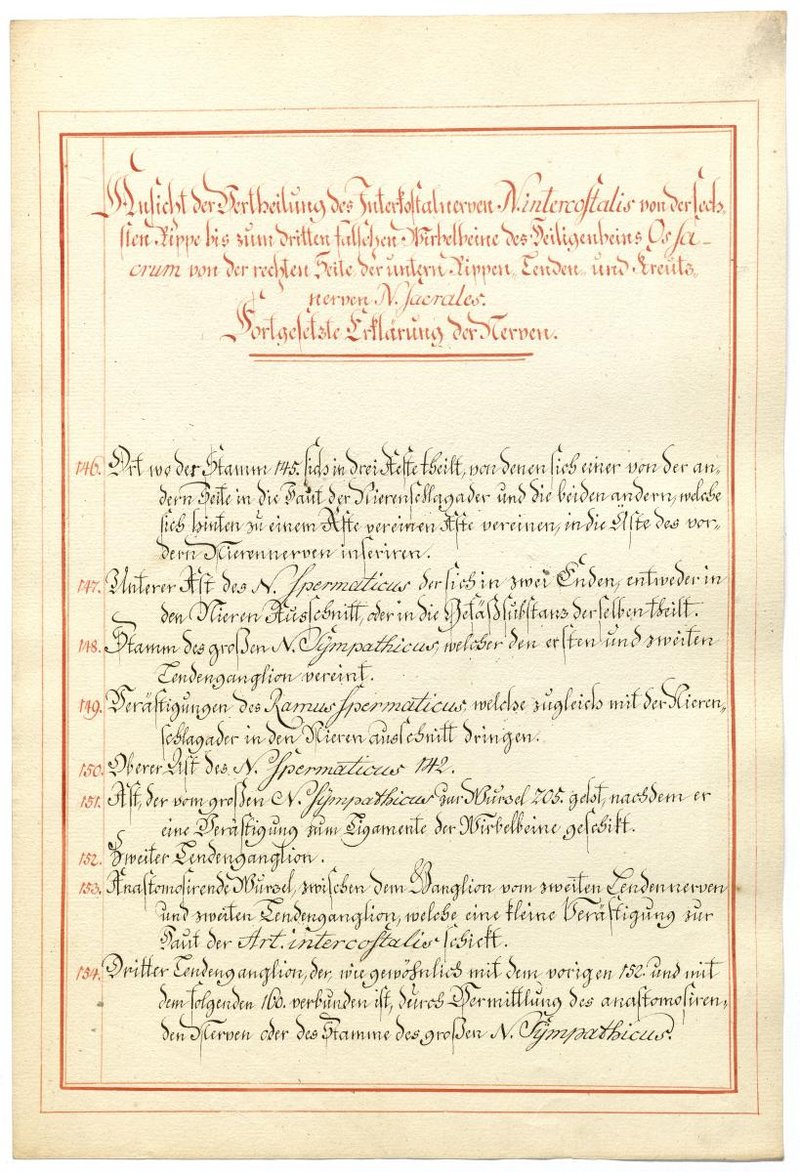 Ansicht der Vertheilung des Interkostalnerven N. intercostalis von der sech-
sten Rippe bis zum dritten falschen Wirbelbeine des Heiligenbeins Os sa-
crum von der rechten Seite, der untern Rippen, Lenden- und Kreutz-
nerven N. sacrales.
Fortgesetzte Erklärung der Nerven.
146. Ort wo der Stamm 145. sich in drei Aeste theilt, von denen sich einer von der an-
dern Seite in die Haut der Nierenschlagader und die beiden andern, welche
sich hinten zu einem Aste vereinen Aste vereinen, in die Äste des vor-
dern Nierennerven inseriren.
147. Unterer Ast des N. Spermaticus der sich in zwei Enden, entweder in
den Nieren Ausschnitt, oder in die Gefäßsubstanz derselben theilt.
148. Stamm des großen N. Sÿmpathicus, welcher den ersten und zweiten
Lendenganglion vereint.
149. Verästigungen des Ramus spermaticus, welche zugleich mit der Nieren-
schlagader in den Nieren ausschnitt dringen.
150. Oberer Ast des N. Spermaticus 142.
151. Ast, der vom großen N. Sÿmpathicus zur Wurzel 205. geht, nachdem er
eine Verästigung zum Ligamente der Wirbelbeine geschikt.
152. Zweiter Lendenganglion.
153. Anastomosirende Wurzel, zwischen dem Ganglion vom zweiten Lendennerven
und zweiten Lendenganglion, welche eine kleine Verästigung zur
Haut der Art. intercostalis schickt.
154. Dritter Lendenganglion, der, wie gewöhnlich mit dem vorigen 152. und mit
dem folgenden 160. verbunden ist, durch Vermittlung des anastomosiren-
den Nerven oder des Stamme des großen N. Sÿmpathicus.